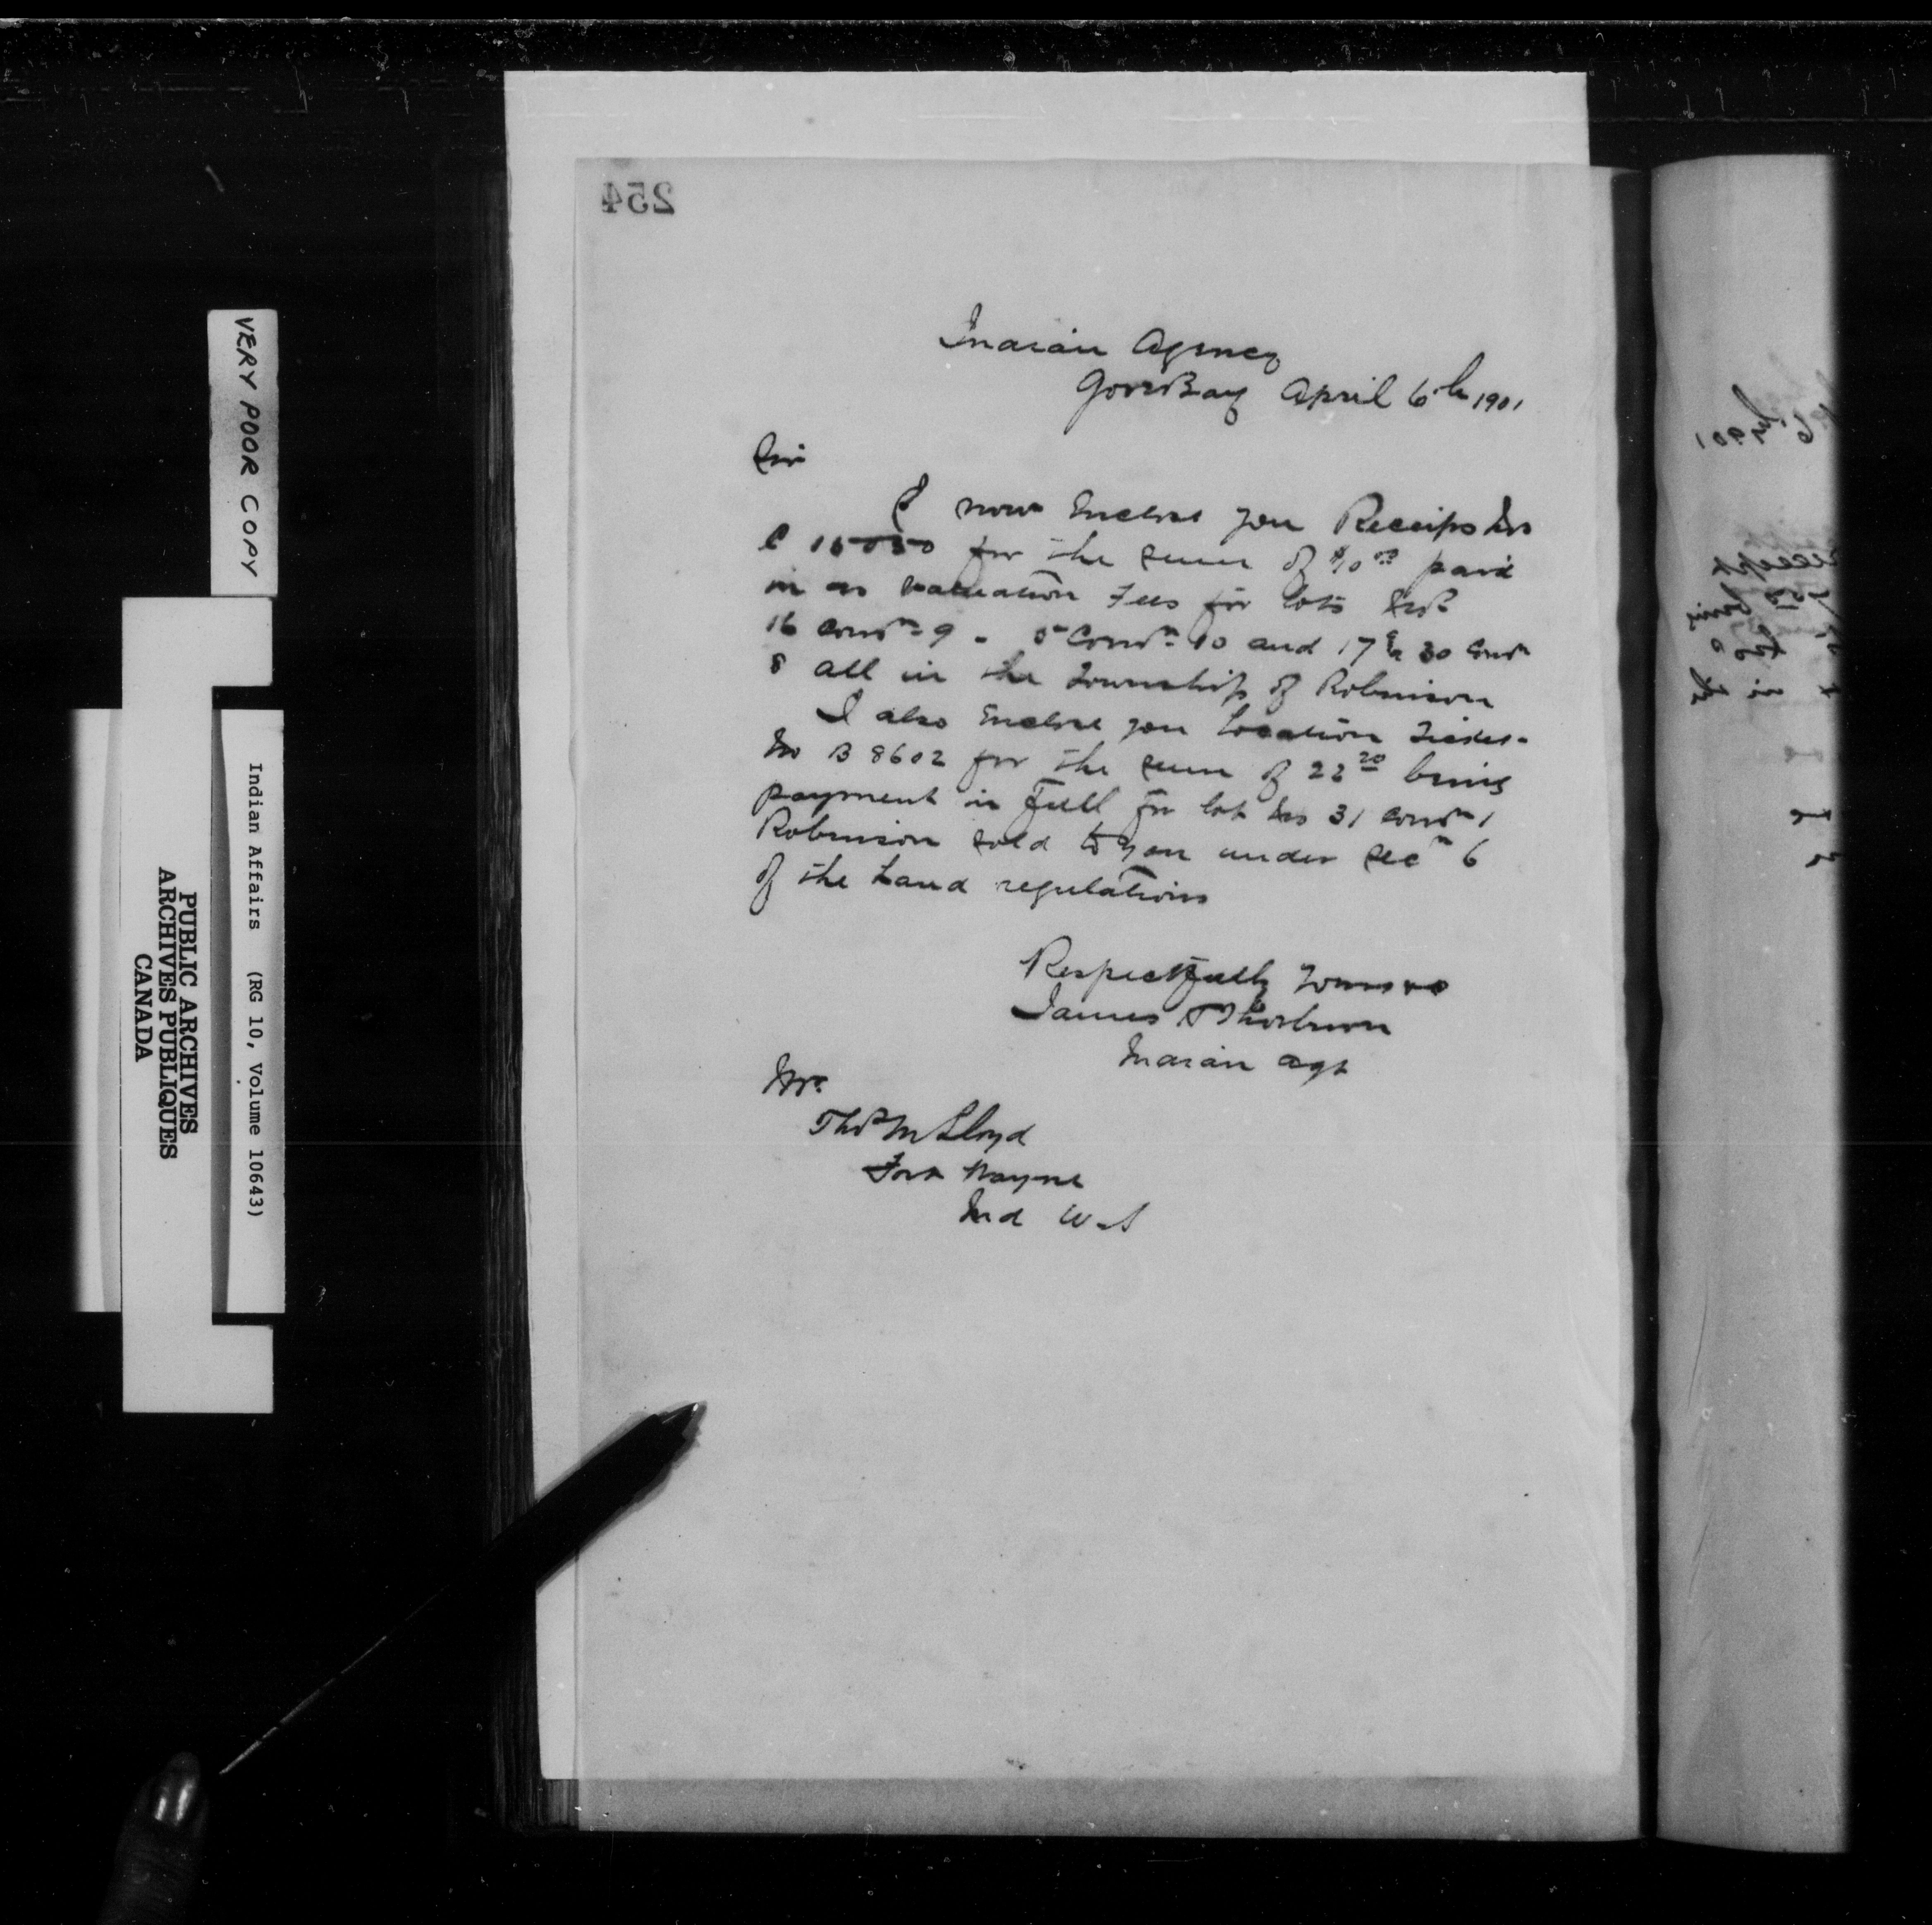 254
Indian Agency
Gore Bay April 6th 1901
Sir
I now Enclose you Receipt No
C 15050 for the sum of $10.00 paid
in as valuation Fees for lots Nos
16 Conn 9 - 5 Conn 10 and 17 & 30 Conn
8 all in the Township of Robinson
I also Enclose you Location Ticket
No B 8602 for the sum of 22 20 being
payment in Full for lot No 31 Conn 1
Robinson sold to you under Secn 6
of the Land regulations
Respectfully Yours
James Thorburn
Indian Agt
Mr
Thos M Lloyd
Fort Wayne
Ind U.S
VERY POOR COPY
Indian Affairs (RG 10, Volume 10643)
PUBLIC ARCHIVES
ARCHIVES PUBLIQUES
CANADA